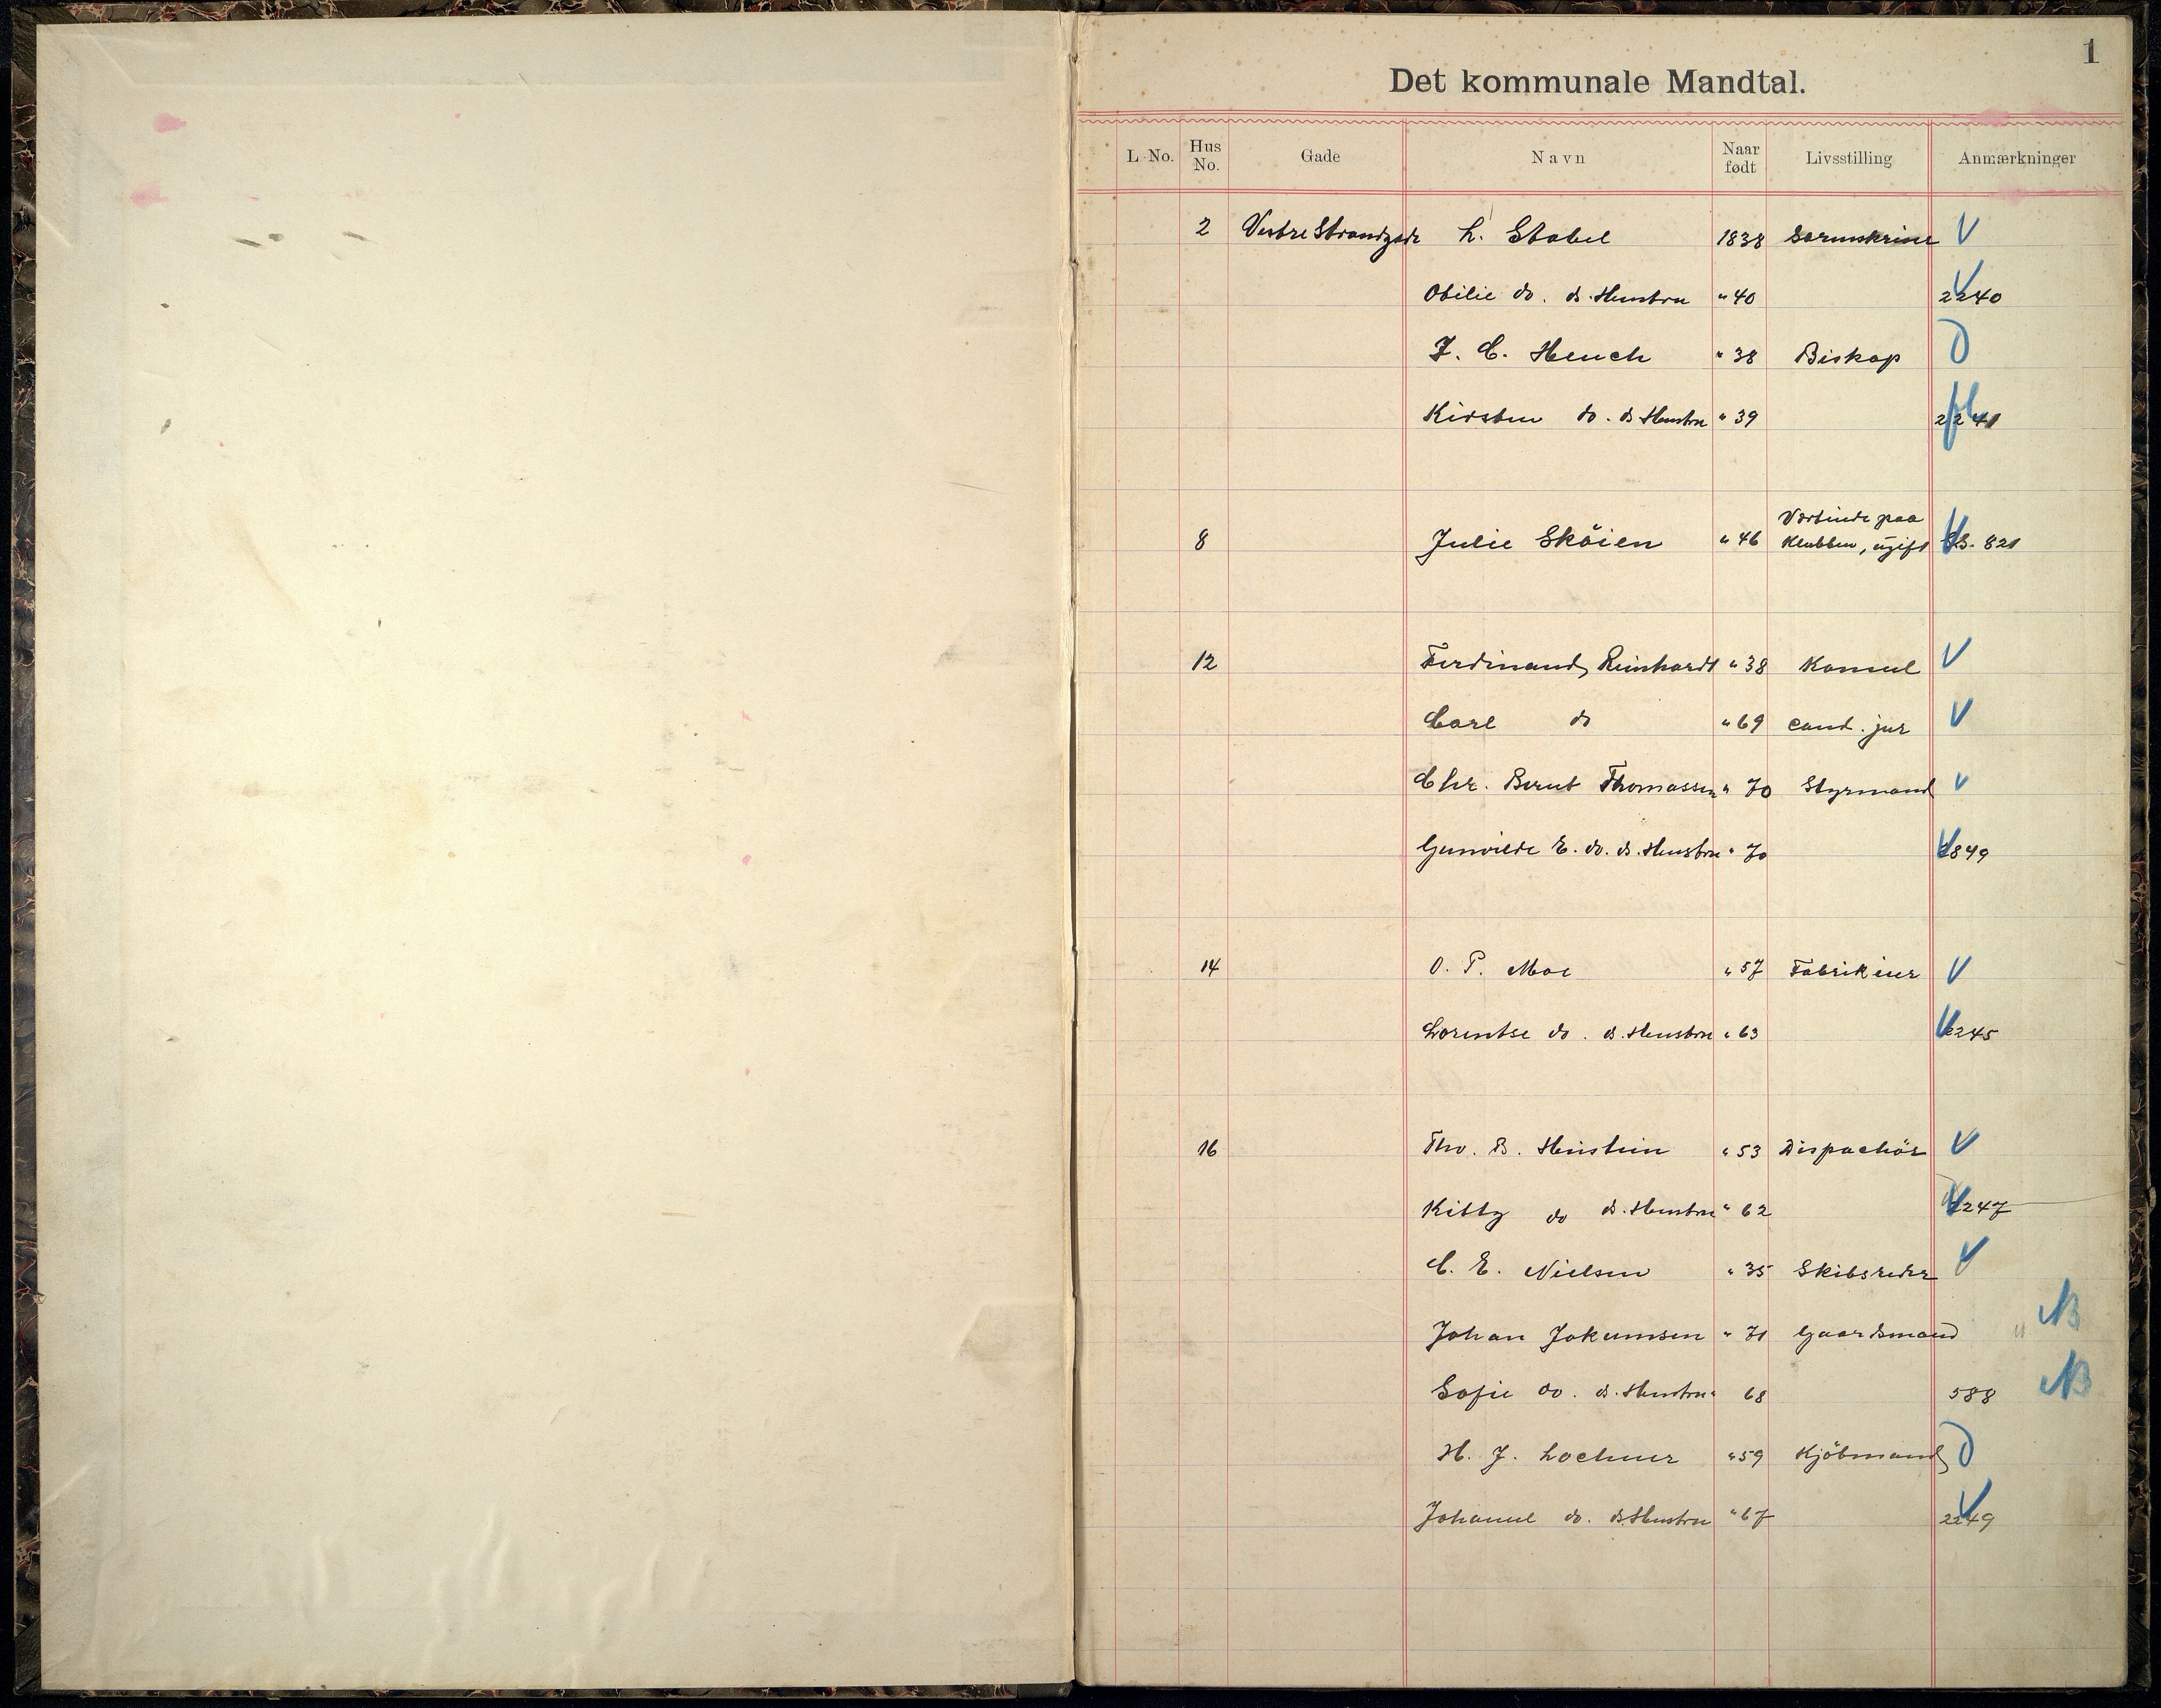 1
Det kommunale Mandtal.
L. No. Hus No. Gade Navn Naar født Livsstilling Anmærkninger
2 Vestre Strandgade L. Stabel 1838 Sorenskriver V
Otilie do. ds. Hustru " 40 2240 V
J. C. Heuch " 38 Biskop
Kirsten do. ds Hustru " 39 2241
Værtinde paa
8 Julie Sköien " 46 Klubben, ugift 821
12 Ferdinand Reinhardt " 38 Konsul V
Carl do " 69 cand. jur V
Chr. Bernt Thomassen " 70 Styrmand V
Gunvilde E. do. ds. Hustru " 70 849
14 O. P. Moe " 57 Fabrikeier V
Lorentse do. ds. Hustru " 63 2245 V
16 Tho. B. Heistein " 53 Dispachör V
Kitty do ds. Hustru " 62 2247 V
C. E. Nielsen " 35 Skibsreder V
Johan Jokumsen " 71 Gaardsmand NB
Sofie do. ds. Hustru " 68 588 NB
H. J. Lochner " 59 Kjöbmand
Johanne do. ds Hustru " 67 2249 V